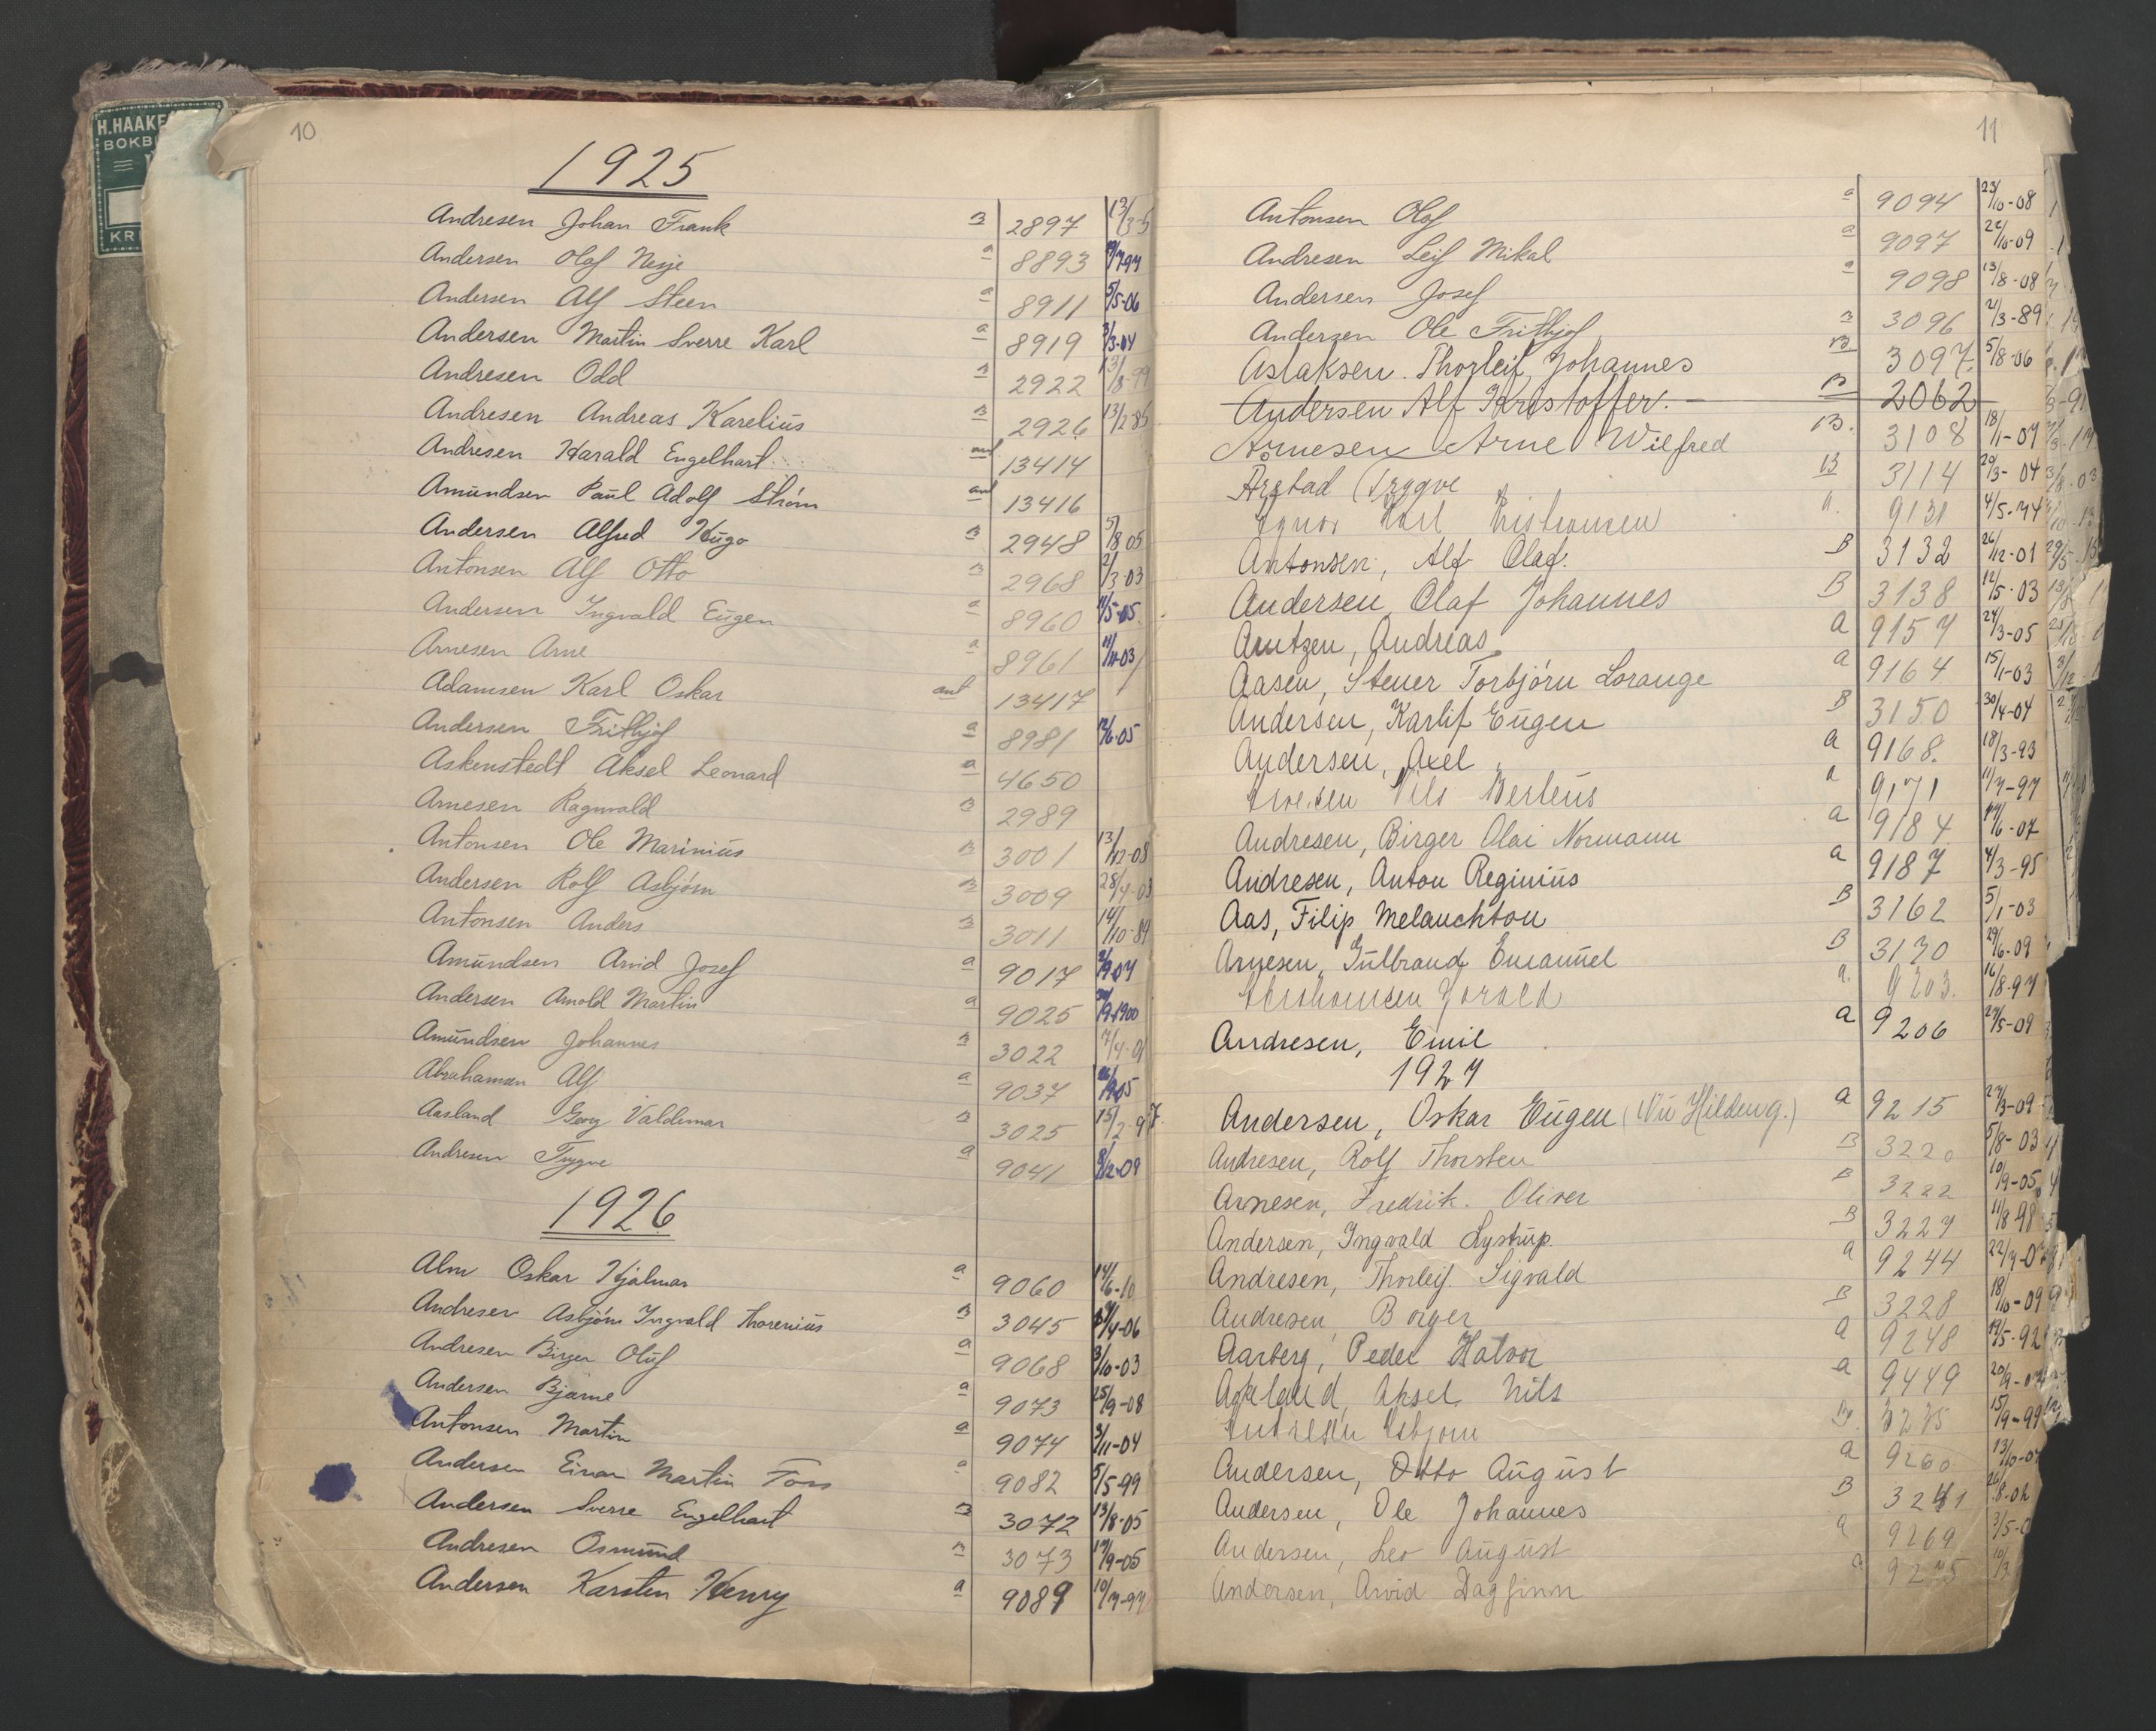 H. HAAKE
BOKBI
KRI
10
1925
Andresen Johan Frank B 2897 13/3-5
Andersen Olaf Nesje a 8893
Andersen Alf Steen a 8911 5/5-06
Andersen Martin Sverre Karl a 8919 3/3-04
Andresen Odd B 2922 13/8-99
Andresen Andreas Karelius B 2926 13/2-85
Andresen Harald Engelhart ant 13414
Amundsen Paul Adolf Strøm ant 13416
Andersen Alfred Hugo B 2948 5/8 05
Antonsen Alf Otto B 2968 2/3-03
Andersen Ingvald Eugen a 8960 11/5-05
Arnesen Arne a 8961 11/11-03
Adamsen Karl Oskar ant 13417
Andersen Frithjof a 8981 12/6-05
Askenstedt Aksel Leonard a 4650
Arnesen Ragnvald B 2989
Antonsen Ole Marinius B 3001 13/12-08
Andersen Rolf Asbjørn B 3009 28/4-03
Antonsen Anders B 3011 14/10-89
Amundsen Arvid Josef a 9017
Andersen Arnold Martin a 9025
Amundsen Johannes B 3022
Abrahamsen Alf a 9037
Aasland Georg Valdemar B 3025 15/2-97
Andresen Trygve a 9041 8/12-09
1926
Alm Oskar Hjalmar a 9060 14/6-10
Andresen Asbjørn Ingvald Thorenius B 3045
Andresen Birger Oluf a 9068 3/10-03
Andersen Bjarne a 9073 25/9-08
Antonsen Martin a 9074 3/11-04
Andersen Einar Martin Foss a 9082 5/5-99
Andersen Sverre Engelhart B 3072 13/8-05
Andresen Osmund B 3073 19/9-05
Andersen Karsten Henry a 9089 10/7-97
11
Antonsen Olaf a 9094 23/10-08
Andresen Leif Mikal a 9097 22/10-09
Andersen Josef a 9098 13/8-08
Andersen Ole Frithjof B 3096 2/3-89
Aslaksen Thorleif Johannes B 3097 5/8-06
Andersen Alf Kristoffer. B 2062
Arnesen Arne Wilfred B. 3108 18/1-07
Arstad Trygve B 3114 29/3-04
Karl a. 9131 4/5-74
Antonsen, Alf Olaf. B 3132 26/12-01
Andersen Olaf Johannes B 3138 12/5-03
Arntzen, Andreas a 9157 24/3-05
Aasen, Stener Torbjørn Lorange a 9164 15/11-03
Andersen, Karlif Eugen B 3150 30/4-04
Andersen, Axel a 9168. 18/3-93
Nils Berteus a 9171 11/7-97
Andresen, Birger Olai Normann a 9184 14/6-07
Andresen, Anton Reginius a 9187 4/3-95
Aas, Filip Melanchton B 3162 5/1-03
Arnesen, Gulbrand Emanuel B 3170 29/6-09
a. 9203. 16/8-97
Andresen, Emil a 9206 27/5-09
1927
Andersen, Oskar Eugen (Nu Hildeng.) a 9215 27/3-09
Andresen, Rolf Thorsten B 3220 5/8-03
Arnesen, Fredrik. Oliver B 3222 10/9-05
Andersen, Ingvald Lystrup. B 3227 11/8 98
Andresen, Thorleif. Sigvald a 9244
Andresen Borger B 3228 18/10-09
Aarberg, Peder Halvor a 9248 19/5-92
Aakeland, Aksel Nils a 9449
Andresen Asbjørn B. 3235 15/9-99
Andersen, Otto August a 9260
Andersen, Ole Johannes B 3241
Andersen, Leo August a 9269
Andersen, Arvid Dagfinn a 9275